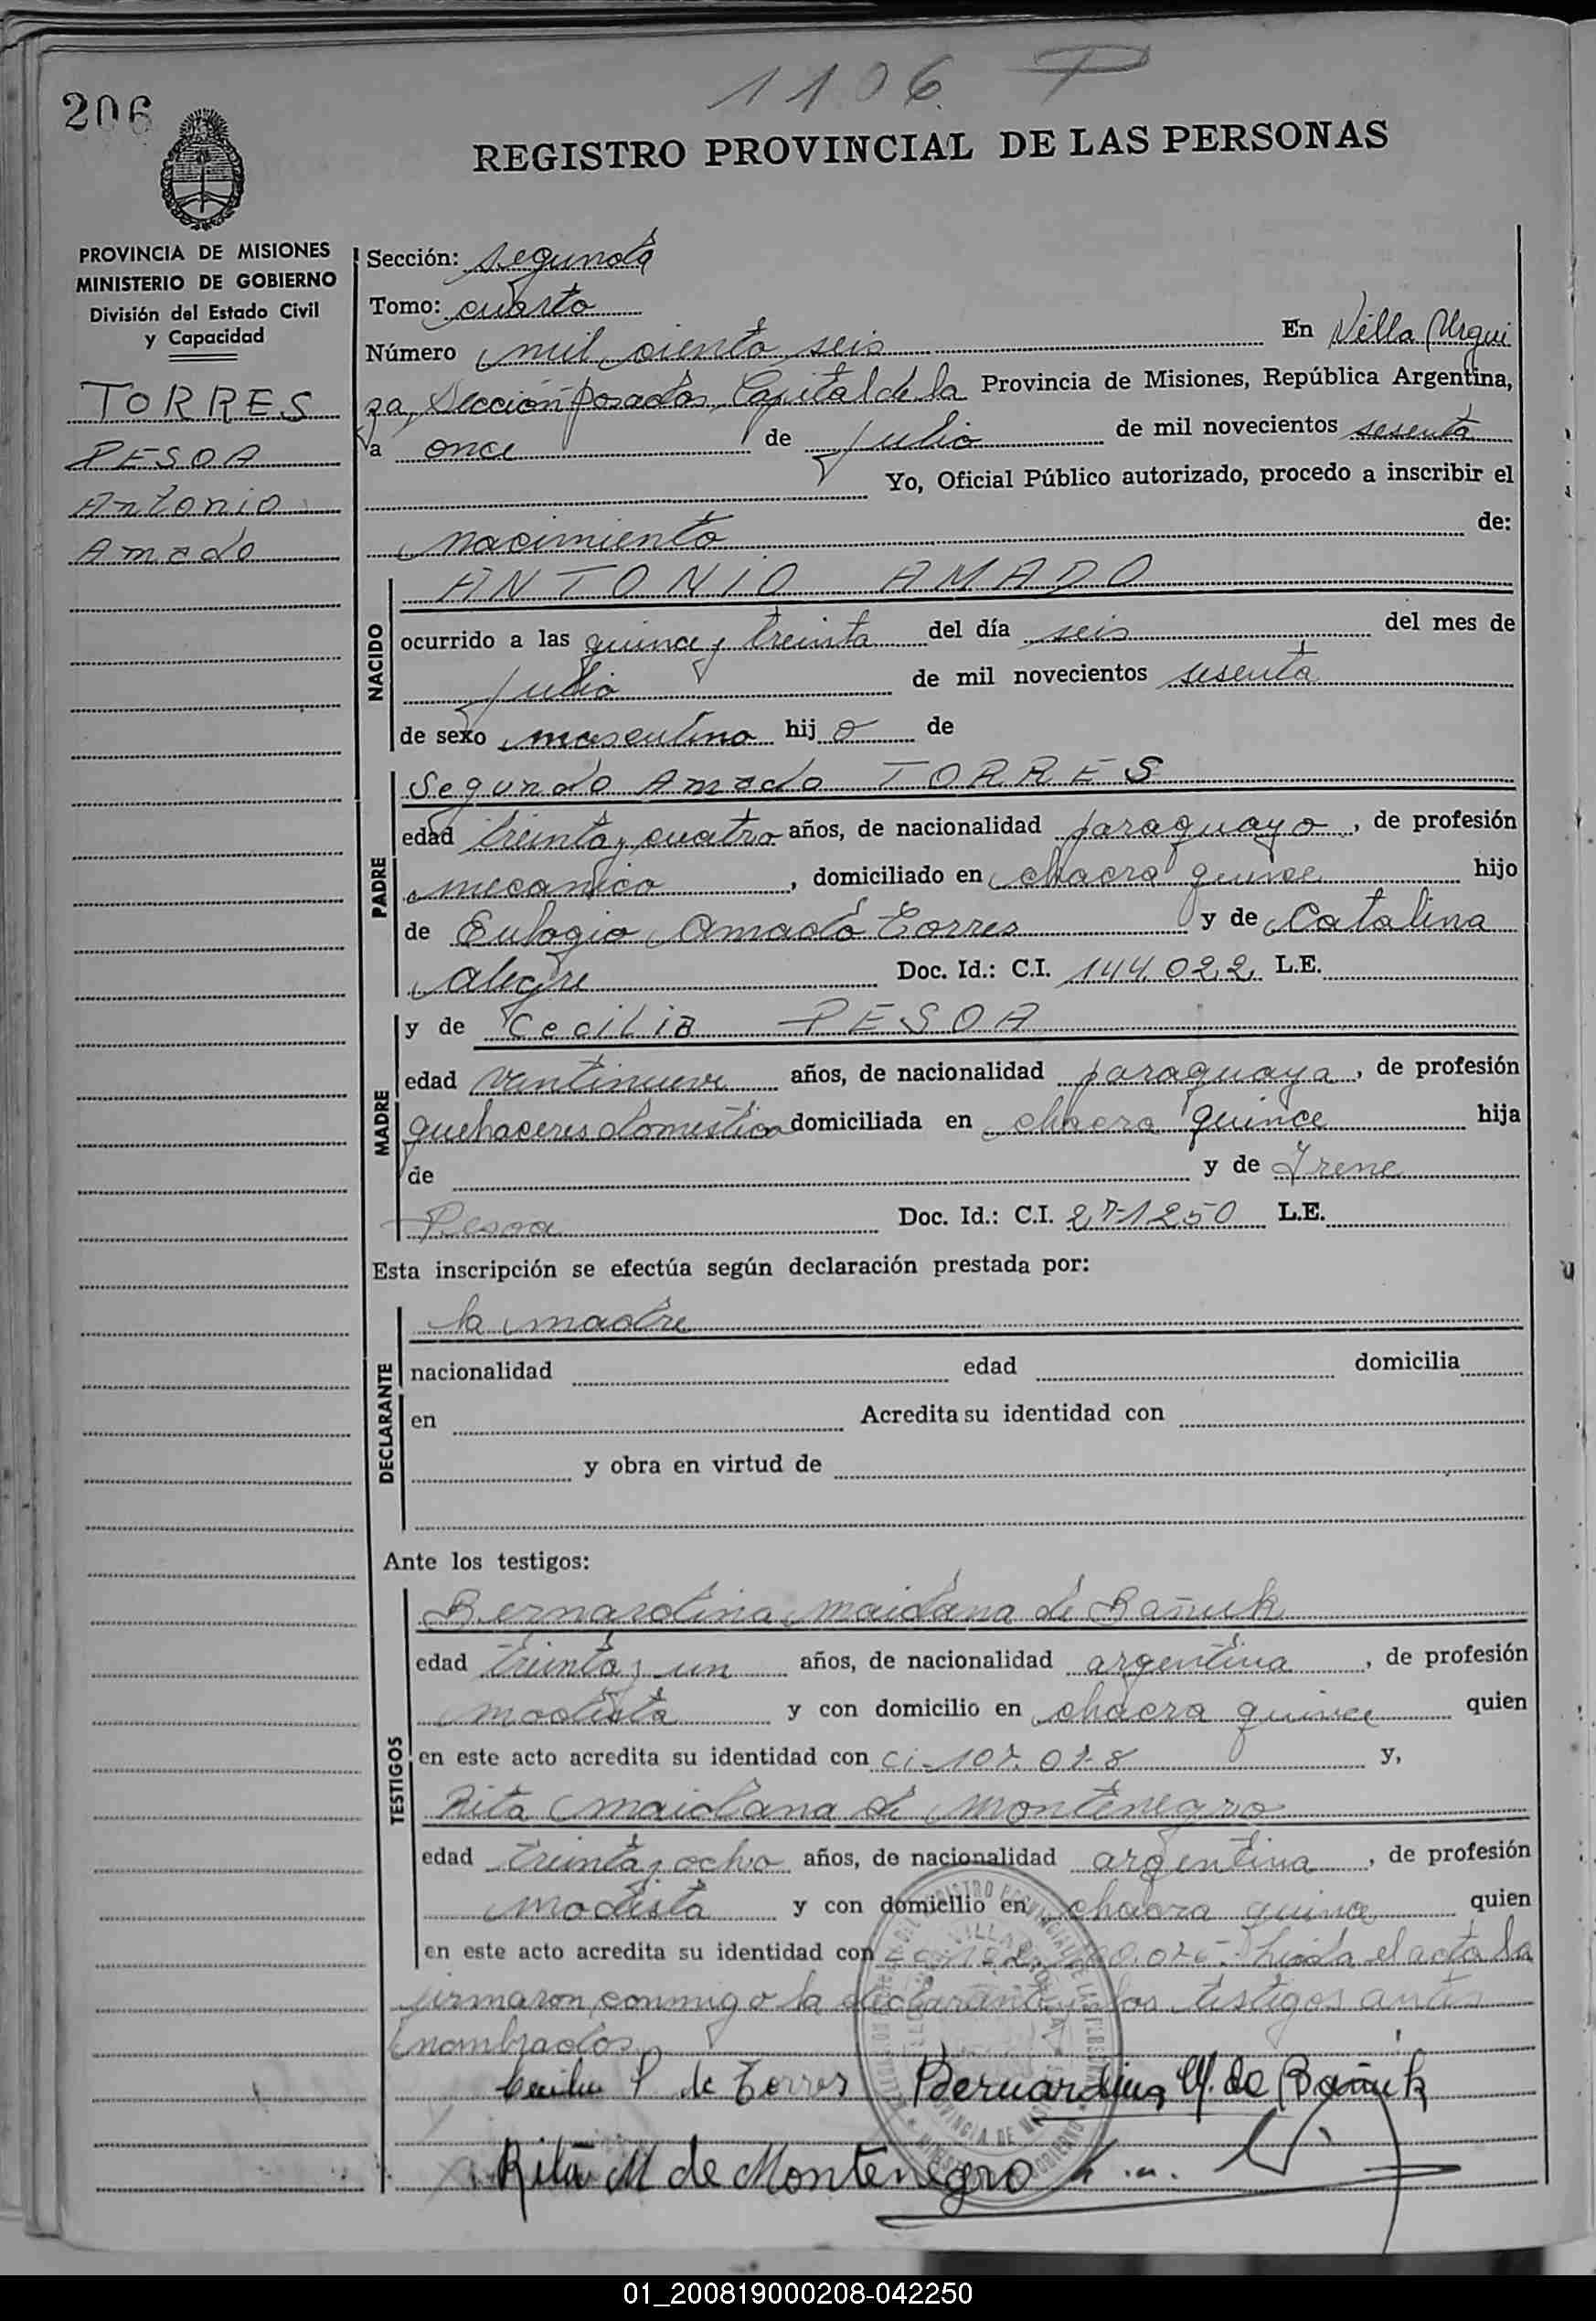 1106 P
206
REGISTRO PROVINCIAL DE LAS PERSONAS
PROVINCIA DE MISIONES
MINISTERIO DE GOBIERNO
División del Estado Civil
y Capacidad
TORRES
PESOA
Antonio
Amado
Sección: segunda
Tomo: cuarto
Número mil ciento seis En Villa Urqui
za, Sección Posadas, Capital de la Provincia de Misiones, República Argentina,
a once de Julio de mil novecientos sesenta
Yo, Oficial Público autorizado, procedo a inscribir el
nacimiento de:
NACIDO
ANTONIO AMADO
ocurrido a las quince y treinta del día seis del mes de
Julio de mil novecientos sesenta
de sexo masculino hij o de
PADRE
Segundo Amado TORRES
edad treinta y cuatro años, de nacionalidad paraguayo, de profesión
mecanico, domiciliado en chacra quince hijo
de Eulogio Amado Torres y de Catalina
Alegre Doc. Id.: C.I. 144.022. L.E.
MADRE
y de Cecilia PESOA
edad ventinueve años, de nacionalidad paraguaya, de profesión
quehaceres domestico domiciliada en chacra quince hija
de y de Irene
Pesoa Doc. Id.: C.I. 271250 L.E.
Esta inscripción se efectúa según declaración prestada por:
DECLARANTE
la madre
nacionalidad edad domicilia
en Acredita su identidad con
y obra en virtud de
Ante los testigos:
TESTIGOS
Bernardina Maidana de Bañuk
edad treinta y un años, de nacionalidad argentina, de profesión
modista y con domicilio en chacra quince quien
en este acto acredita su identidad con Ci-107.078 y,
Rita Maidana de Montenegro
edad treinta y ocho años, de nacionalidad argentina, de profesión
modista y con domicilio en chacra quince quien
en este acto acredita su identidad con Leida el acta la
firmaron conmigo la declarante y los testigos antes
nombrados.
Cecilia P de Torres Bernardina M. de Bañuk
Rita M de Montenegro
01_200819000208-042250